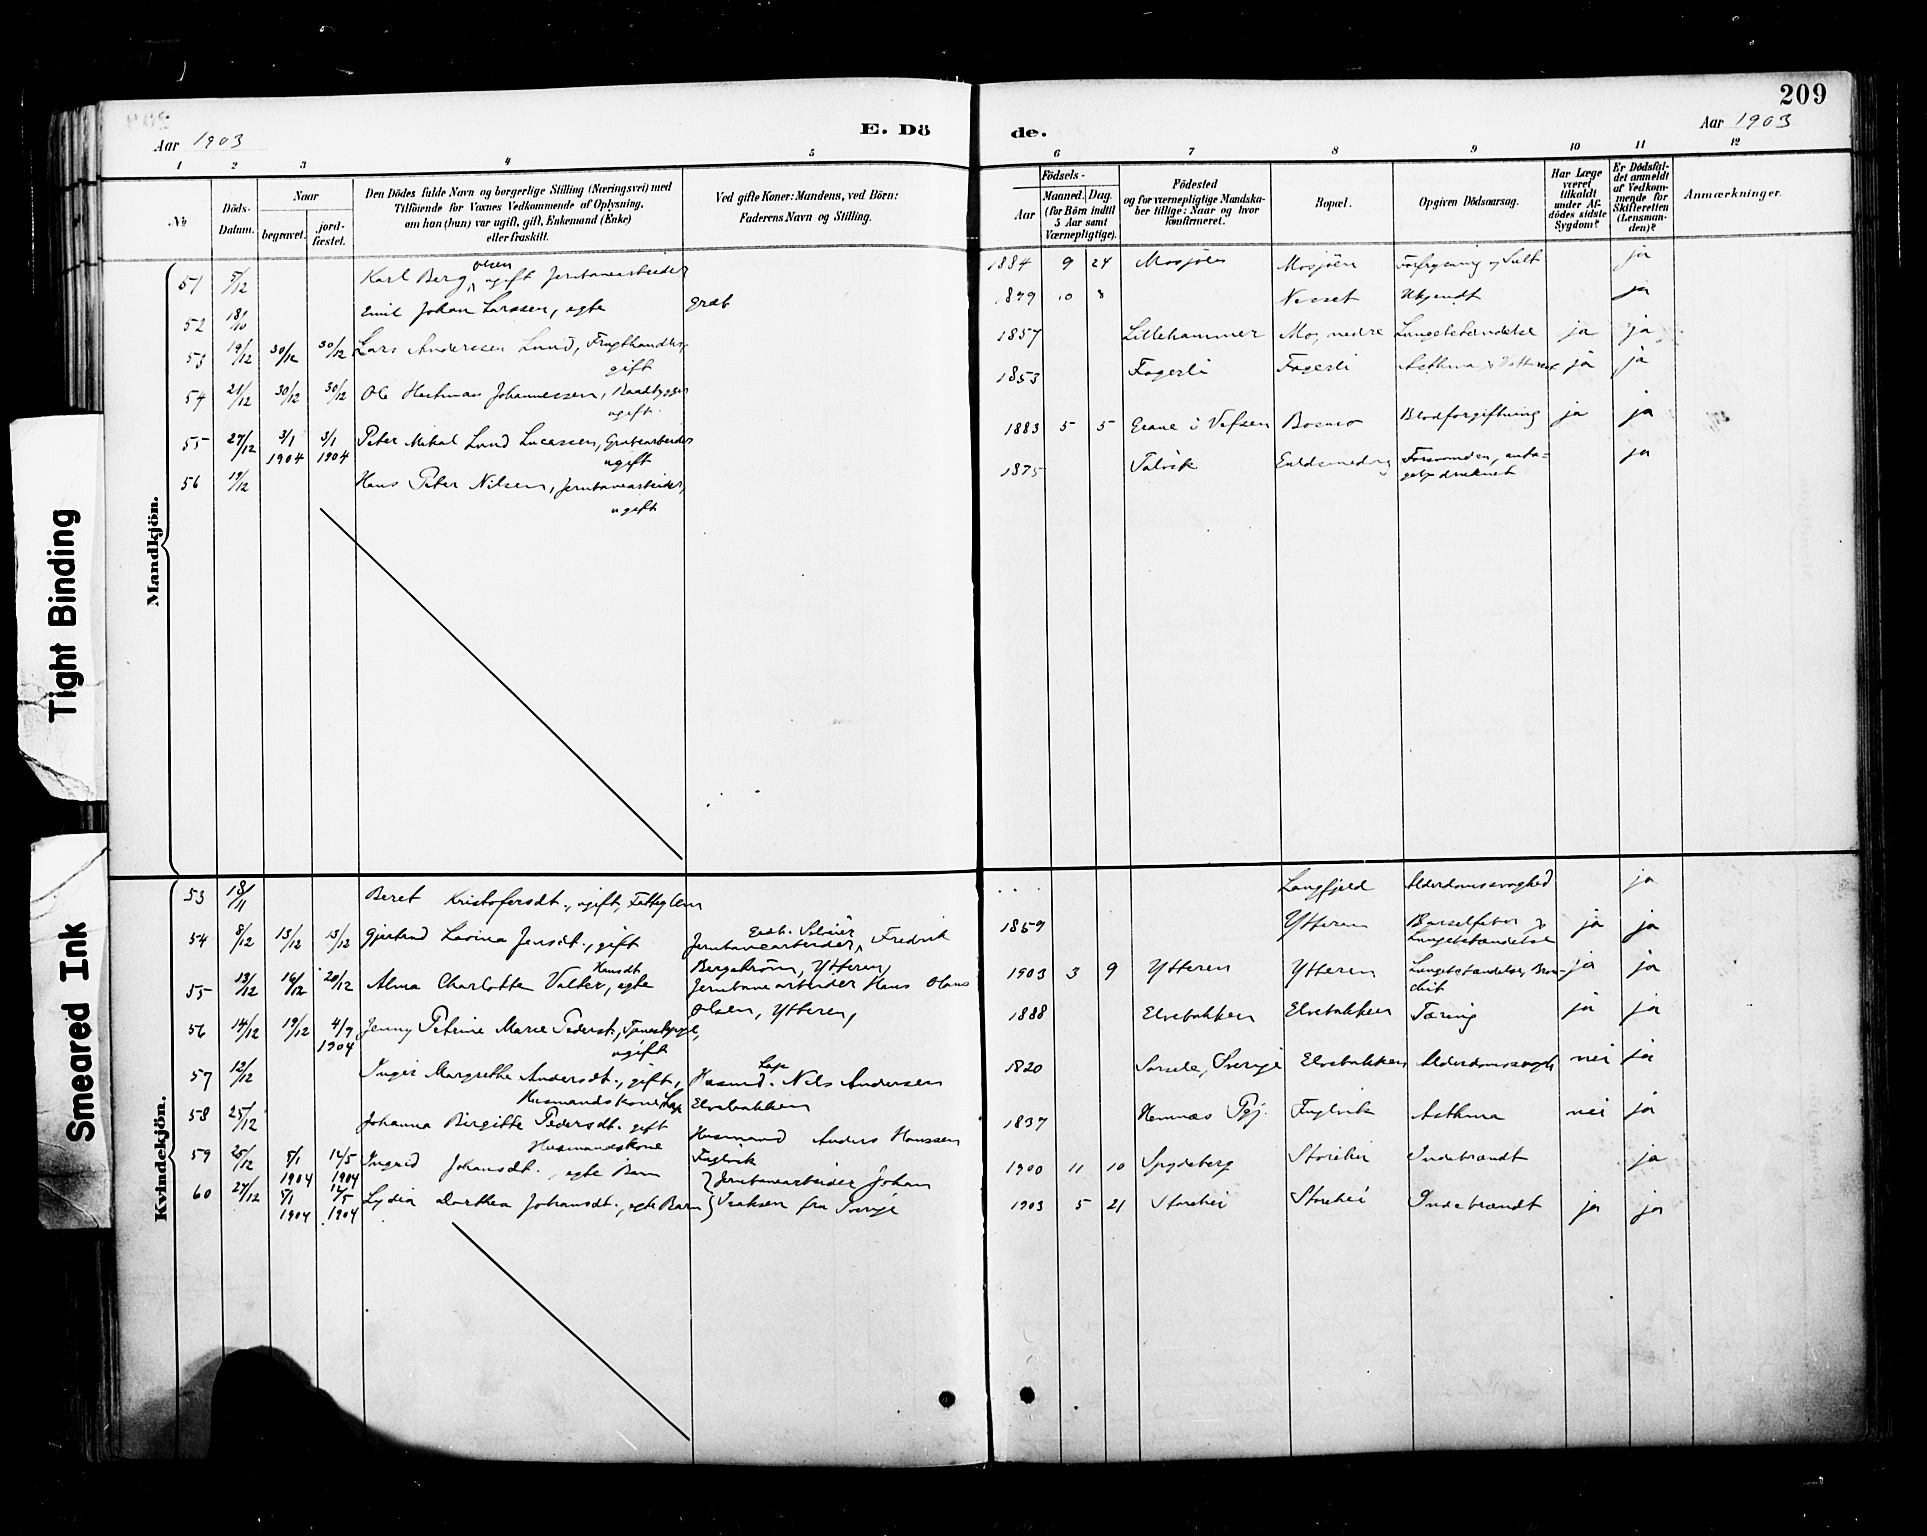 209
Aar 1903
E. Dö
de.
Aar 1903
1 2 3 4 5 6 7 8 9 10 11 12
No
Döds-Datum.
Naar
begravet.
jord-fæstet.
Den Dödes fulde Navn og borgerlige Stilling (Næringsvei) med
Tilföiende for Voxnes Vedkommende af Oplysning,
om han (hun) var ugift, gift, Enkemand (Enke)
eller fraskilt.
Ved gifte Koner: Mandens, ved Börn:
Faderens Navn og Stilling.
Födsels-
Aar
Maaned. Dag.
(for Börn indtil
5 Aar samt
Værnepligtige).
Födested
og for værnepligtige Mandska-
ber tillige: Naar og hvor
konfirmeret.
Bopæl.
Opgiven Dödsaarsag.
Har Læge
været
tilkaldt
under Af-
dödes sidste
Sygdom?
Er Dödsfal-
det anmeldt
af Vedkom-
mende for
Skifteretten
(Lensman-
den)?
Anmærkninger.
Mandkjön.
51 5/12 Karl Berg Olsen, ugift Jernbanearbeider 1884 9 24 Mosjöen Mosjöen Forfrysning og Sult ja
52 18/10 Emil Johan Larssen, egte 10 Nesset Ukjendt ja
53 19/12 30/12 30/12 Lars Anderssen Lund, Frugthandler, 1857 Lillehammer Mo, nedre Lungebetændelse ja ja
gift
54 21/12 30/12 30/12 Ole Hartman Johannessen, Baadbygger 1853 Fagerli Fagerli Asthma ja ja
ugift
55 27/12 3/1 1904 3/1 1904 Peter Mikal Lund Lucassen, Grubearbeider 1883 5 5 Grane i Vefsen Bosmo Blodforgiftning ja ja
ugift
56 19/12 Hans Peter Nilsen, Jernbanearbeider, 1875 Talvik ja
ugift
Kvindekjön.
53 18/11 Beret Kristofersdt., ugift, Fattiglem Langfjeld Alderdomssvaghed ja
54 8/12 13/12 13/12 Gjertrud Lovina Jensdt., gift Jernbanearbeider Fredrik 1859 Ytteren Barselfeber og ja ja
Lungebetændelse
Bergström, Ytteren,
55 13/12 16/12 20/12 Alma Charlotte Valter Hansdt., egte Jernbanearbeider Hans Olaus 1903 3 9 Ytteren Ytteren Lungebetændelse, Bron- ja ja
Olsen, Ytteren,
56 14/12 19/12 4/7 1904 Jenny Petrine Marie Pedersdt, Tjenestepige, 1888 Elvebakken Elvebakken Tæring ja ja
ugift
57 12/12 Inger Margrethe Andersdt., gift, Husmd. Lap Nils Andersen 1820 Sorsele, Sverige Elvebakken Alderdomssvagh nei ja
Husmandskone Lap Elvebakken
58 25/12 Johanna Birgitte Pedersdt. gift Husmand Anders Hanssen 1837 Hemnæs Pgj. Fuglvik Asthma nei ja
Husmandskone Fuglvik
59 25/12 5/1 1904 14/5 1904 Ingrid Johansdt., egte Barn Jernbanearbeider Johan 1900 11 10 Spydeberg Storehei Indebrændt ja
60 27/12 5/1 1904 14/5 1904 Lydia Dorthea Johansdt., egte Barn Isaksen fra Sverige 1903 5 21 Storehei Storehei Indebrændt ja ja
Tight Binding
Smeared Ink